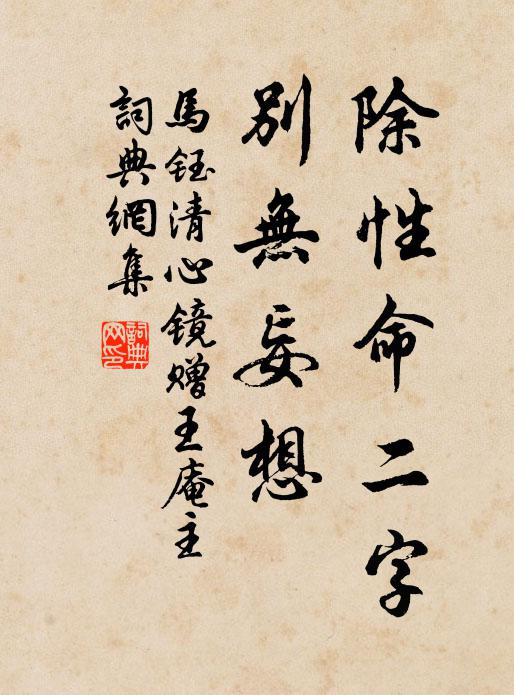 除性命二字
別無妄想
馬鈺清心镜赠王庵主
詞典網集
詞典网印